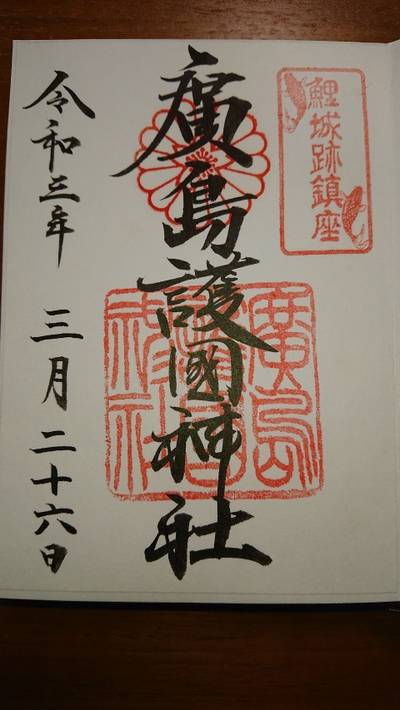 鯉城跡鎮座
廣島護國神社
廣島護國神社
令和三年 三月二十六日